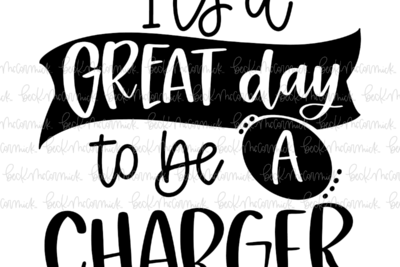 It's a
GREAT day
to be A
CHARGER